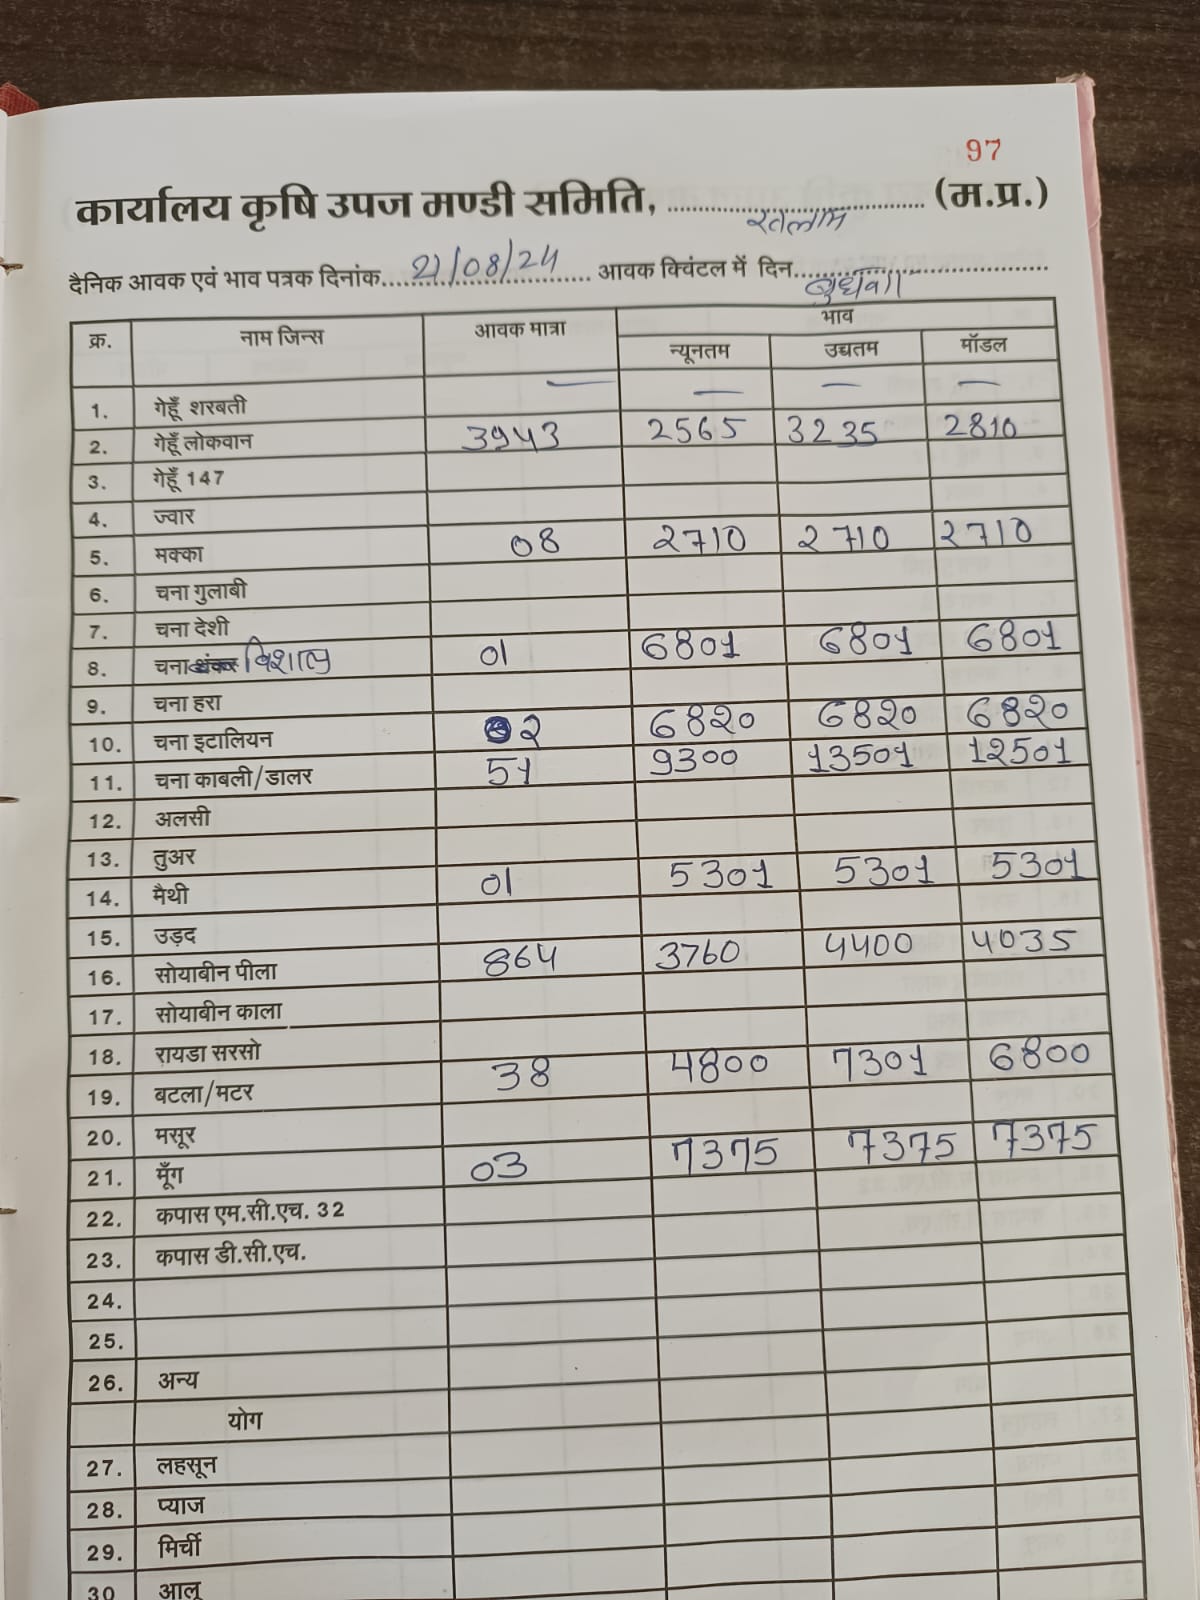 97
कार्यालय कृषि उपज मण्डी समिति, रतलाम (म.प्र.)
दैनिक आवक एवं भाव पत्रक दिनांक 21/08/24 आवक क्विंटल में दिन बुधवार
क्र. नाम जिन्स आवक मात्रा भाव
न्यूनतम उच्चतम मॉडल
1. गेहूँ शरबती — — — —
2. गेहूँ लोकवान 3943 2565 3235 2810
3. गेहूँ 147
4. ज्वार
5. मक्का 08 2710 2710 2710
6. चना गुलाबी
7. चना देशी
8. चना शंकर विशाल 01 6801 6801 6801
9. चना हरा
10. चना इटालियन 2 6820 6820 6820
11. चना काबली/डालर 51 9300 13501 12501
12. अलसी
13. तुअर
14. मैथी 01 5301 5301 5301
15. उड़द
16. सोयाबीन पीला 864 3760 4400 4035
17. सोयाबीन काला
18. रायडा सरसो
19. बटला/मटर 38 4800 7301 6800
20. मसूर
21. मूँग 03 7375 7375 7375
22. कपास एम.सी.एच. 32
23. कपास डी.सी.एच.
24.
25.
26. अन्य
योग
27. लहसून
28. प्याज
29. मिर्ची
30 आलू